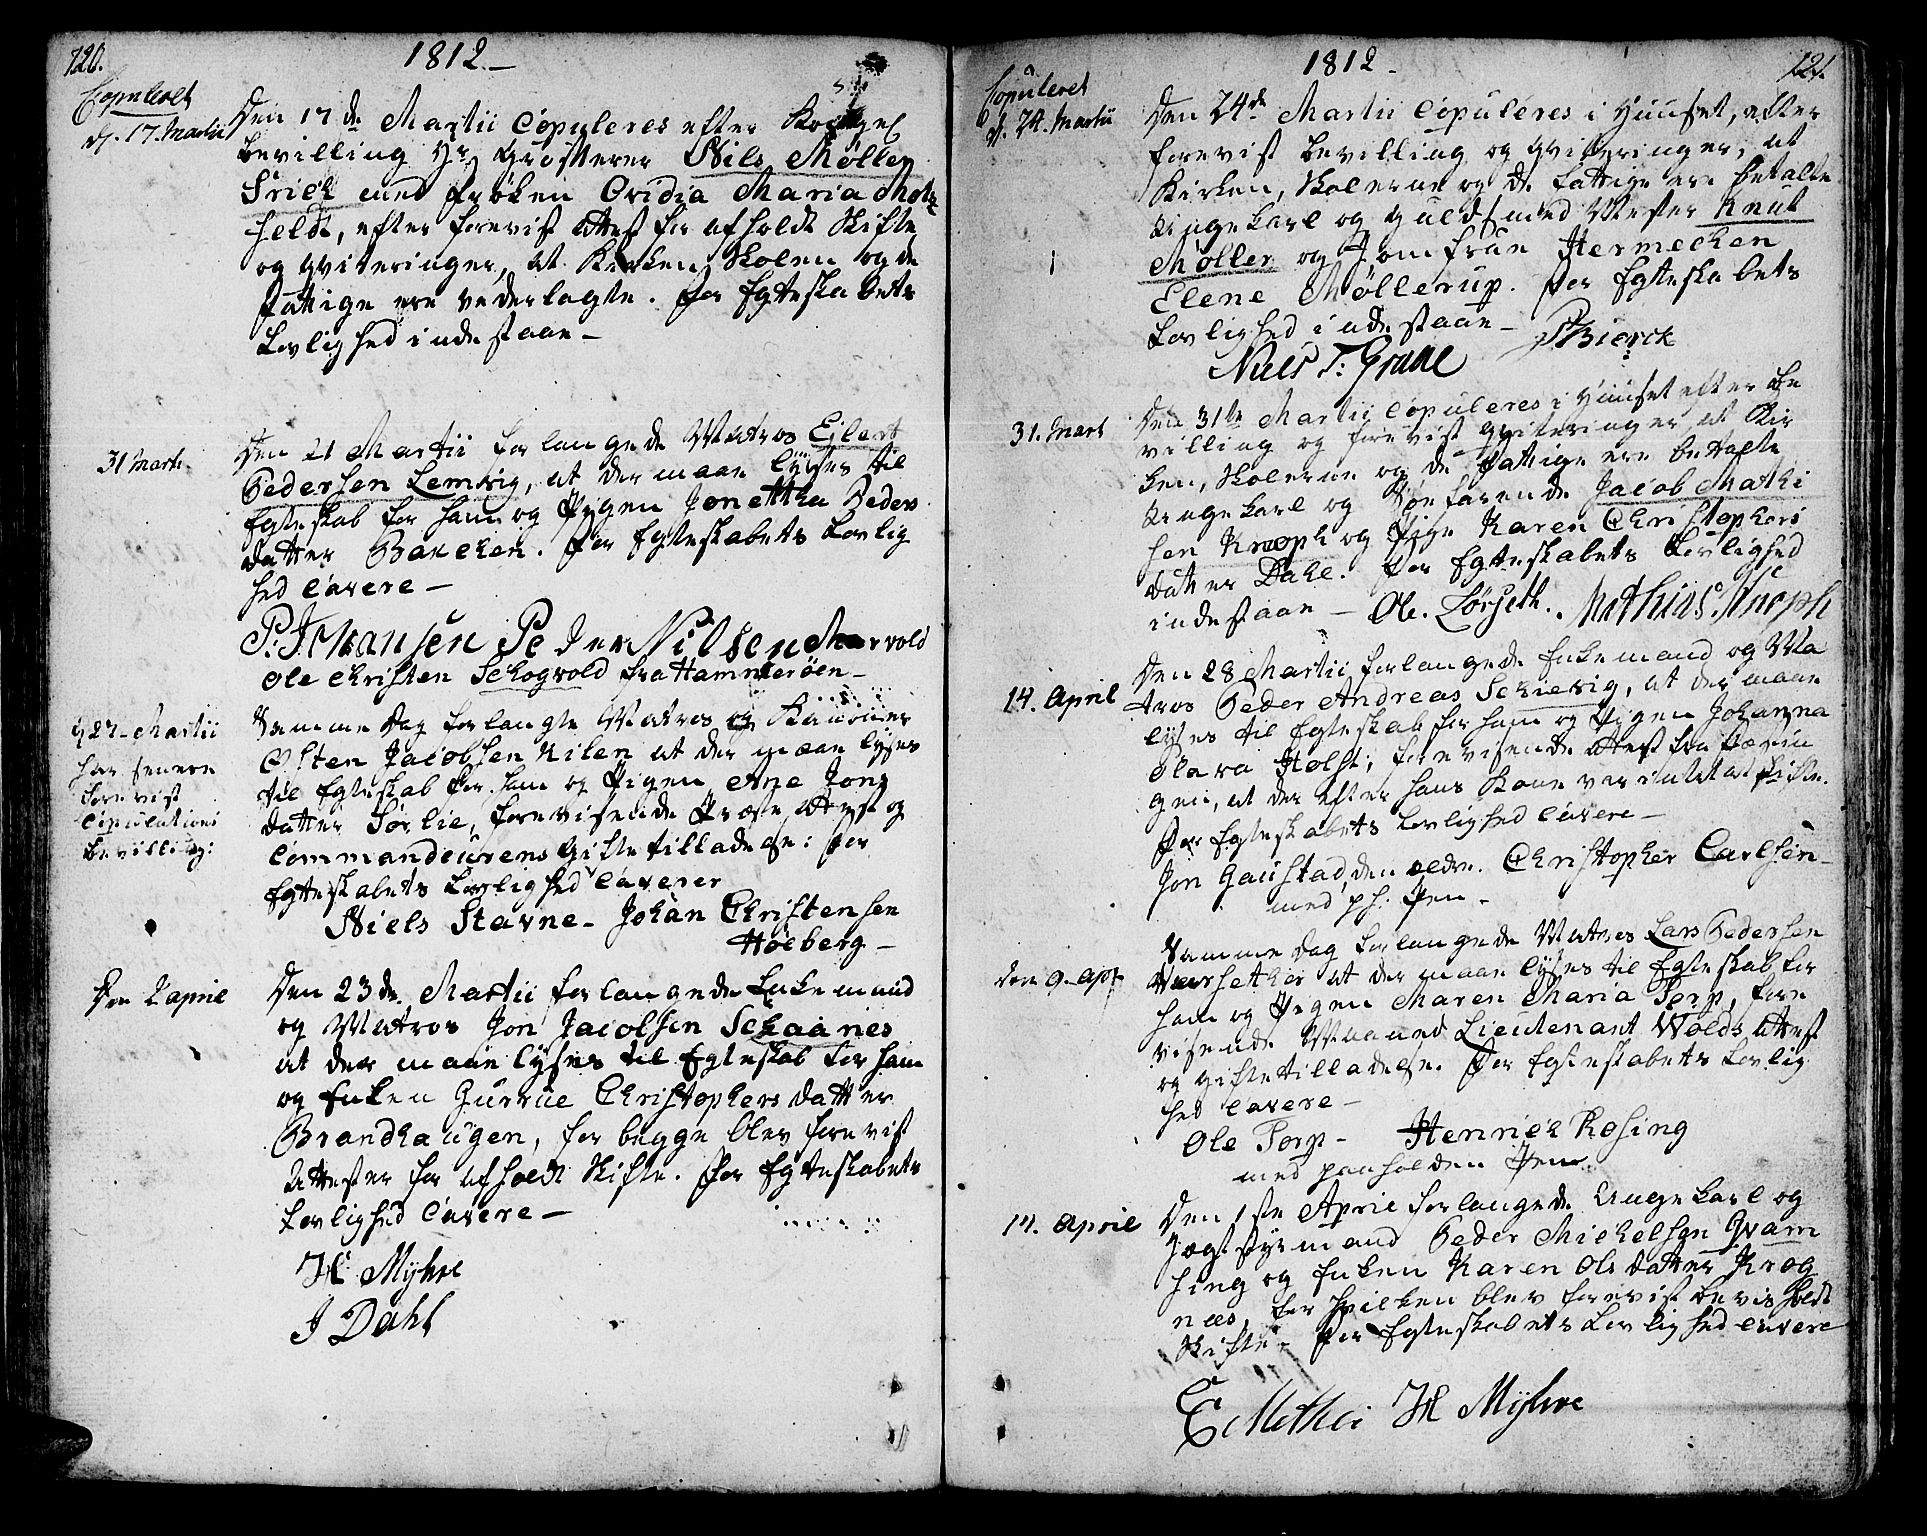 120.
1812.-
Copuleret
d. 17. Martii
Den 17de Martii Copuleres efter
bevilling Hr Grosserer Nils Møller
Irich med Frøken Ovidia Maria Motz
feldt, efter forevist Attest for afholdt Skifte,
og Qviteringer, at Kirken, Skolen og de
fattige ere vederlagte. For Egteskabets
Lovlighed indestaae-
31 Marti.
Den 21 Martii forlangede Matros Eilert
Pedersen Lemvig, at der maae lyses til
Egteskab for ham og Pigen Jonettha Peders
datter Bakeken. For Egteskabets Lovlig
hed Cavere-
P. J. Hansen Peder Nilsen Marvold
Ole Christen Schogvold fra Hammerøen-
d 27- Martii
har senere
forevist
Copulations
bevilling:
Samme Dag forlangte Matros og Kanoneer
Osten Jacobsen Kilen at der maae lyses
til Egteskab for ham og Pigen Ane Jons
datter Sørlie, forevisende Præste Attest og
Commandeurens Giftetilladelse: for
Egteskabets Lovlighed Caverer
Niels Stavne- Johan Christensen
Høeberg-
Den 2 april
Den 23de. Martii forlangede Enkemand
og Matros Jon Jacobsen Schaanes
at der maae lyses til Egteskab for ham
og Enken Gurrue Christophersdatter
Brandhaugen, for begge blev forevist
Attester for afholdt Skifte. For Egteskabets
Lovlighed Cavere-
H Myhre
J Dahl
1812-
121.
Copuleret
d. 24. Martii
Den 24de Martii Copuleres i Huuset, efter
forevist bevilling og Qviteringer, at
Kirken, Skolerne og de fattige ere betalte
Ungekarl og Guldsmed Mester Knut
Møller og Jomfrue Hermecken
Elene Møllerup. For Egteskabets
Lovlighed indestaae- P Bierck
Niels T: Graae
31. Mart
Den 31te Martii Copuleres i Huuset efter be
villing og forevist Qviteringer, at Kir
ken, Skolerne og de fattige ere betalte
Ungekarl og Søefarende Jacob Mathi
sen Knoph og Pige Karen Christophers
datter Dahl. For Egteskabets Lovlighed
indestaae- Ole. Lørseth. Mathias Knoph
14. April
Den 28 Martii forlangede Enkemand og Ma
tros Peder Andreas Schiervig, at der maae
lyses til Egteskab for ham og Pigen Johanna
Olava Holst, forevisende Attest fra
gen, at der efter hans Kone var intet at skifte.
For Egteskabets Lovlighed Cavere-
Jon Gaustad, den ældre. Christopher Carlsen-
med ph. Pen-
den 9. Apr
Samme Dag forlangede Matros Lars Pedersen
at der maae lyses til Egteskab for
ham og Pigen Maren Maria Torp, fore
visende Maaned Lieutenant Wolds Attest
og Giftetilladelse. For Egteskabets Lovlig
hed Cavere-
Ole Torp- Henrich Rosing
med paaholden Pen
14. April
Den 1ste April forlangede Ungekarl og
Jægtstyrmand Peder Michelsen Qvam
hing og Enken Karen Olsdatter Krog
næs, for hvilken blev forevist bevis holdt
Skifte- For Egteskabets Lovlighed Cavere
E Methei H Myhre